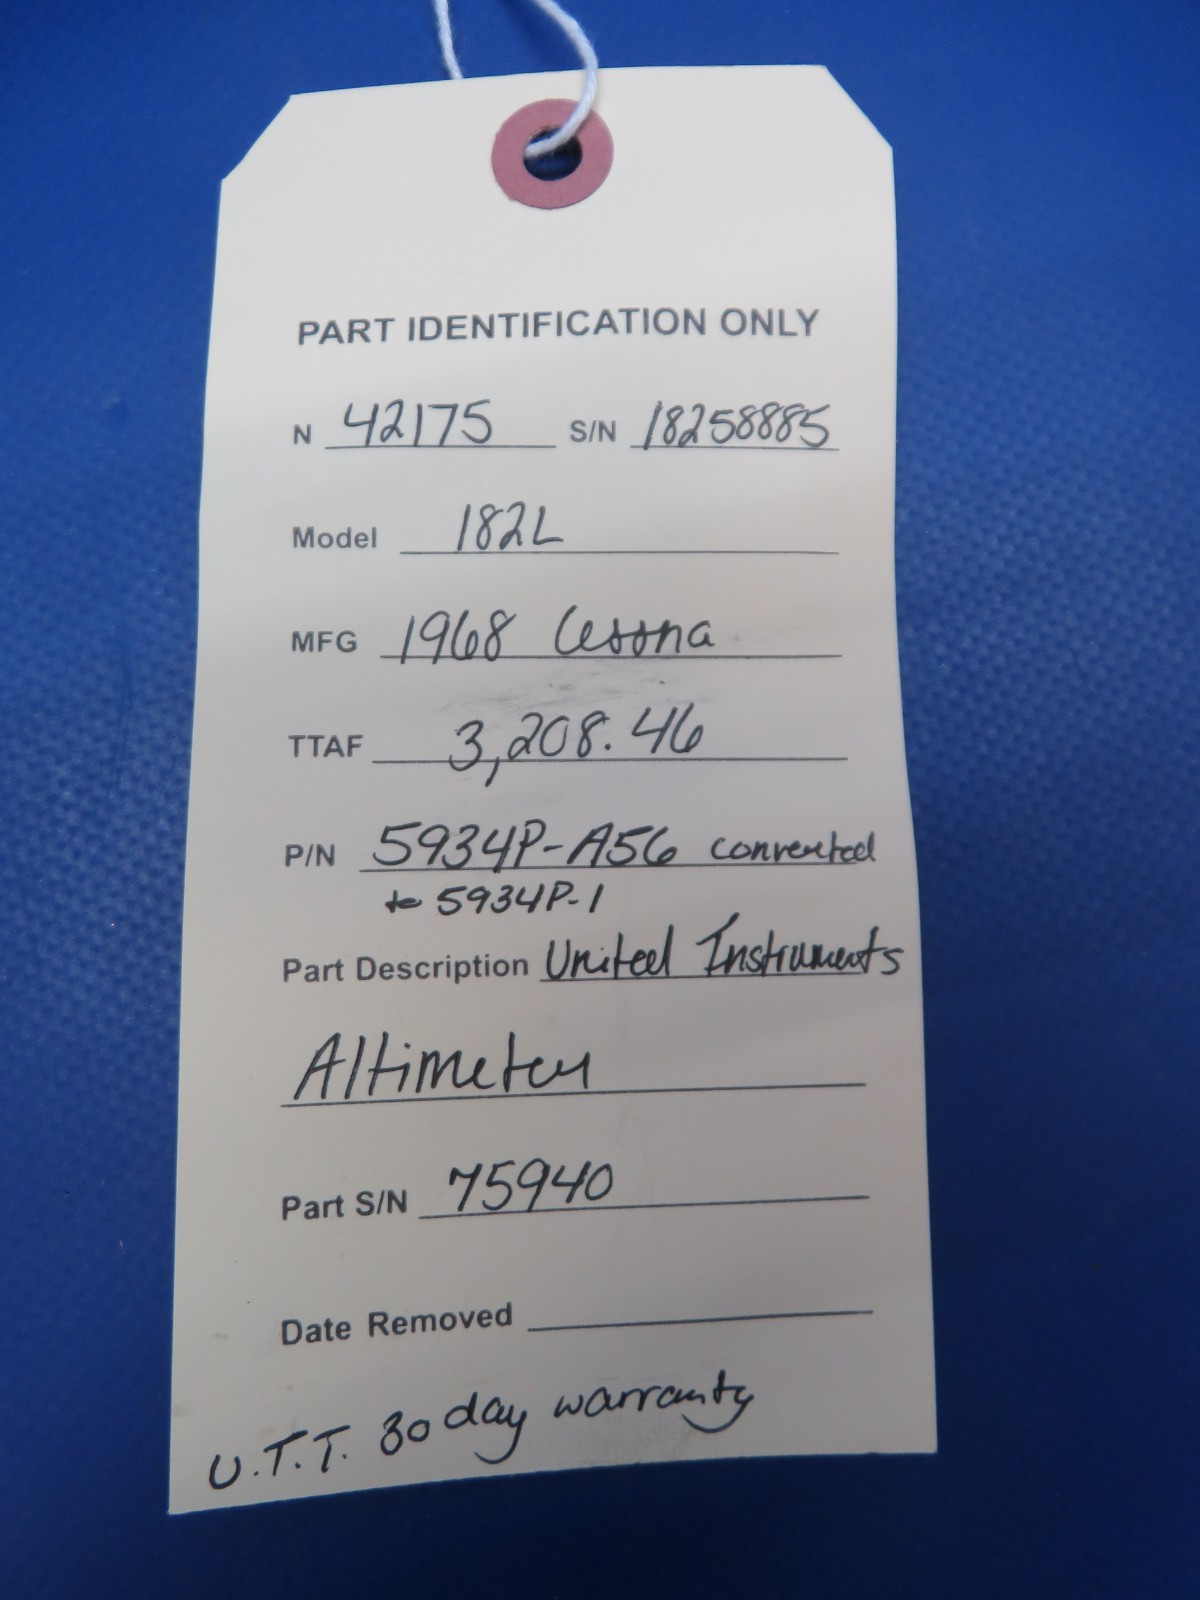 PART IDENTIFICATION ONLY
N 42175 S/N 18258885
Model 182L
MFG 1968 Cessna
TTAF 3,208.46
P/N 5934P-A56 converted
to 5934P-1
Part Description United Instruments
Altimeter
Part S/N 75940
Date Removed
U.T.T. 30 day warranty